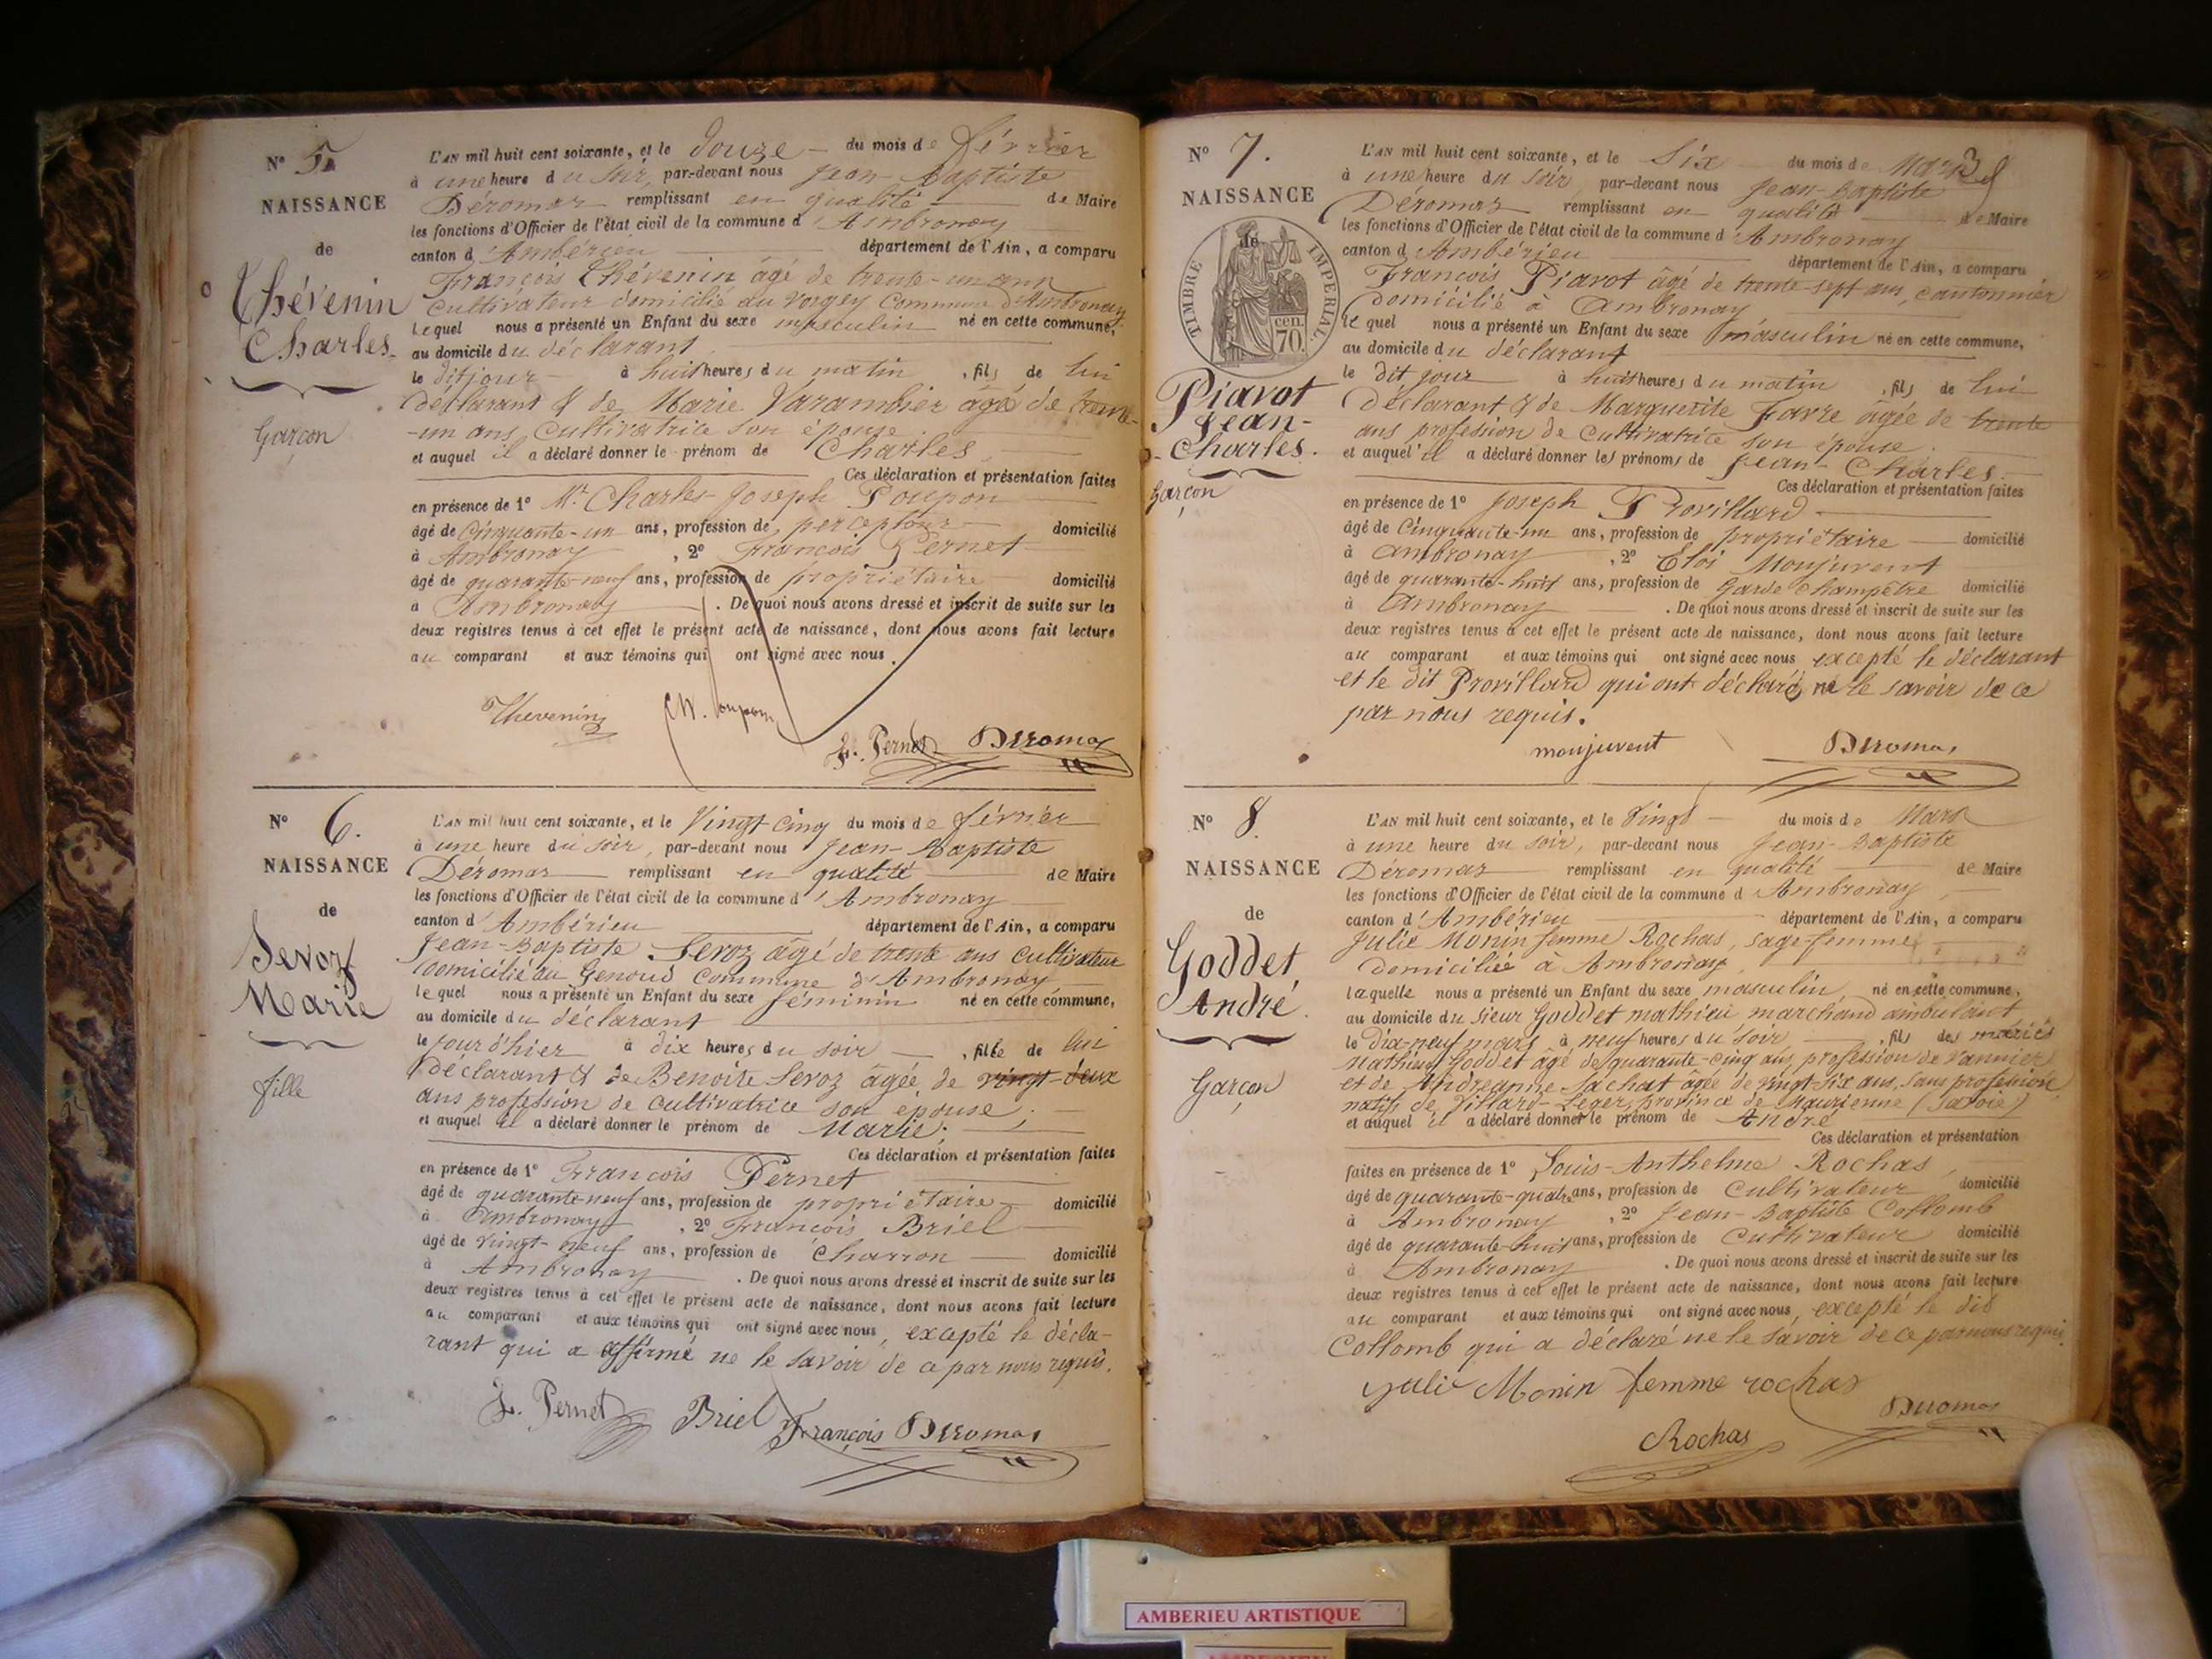 N° 5.
NAISSANCE
de
Thévenin
Charles.
Garçon
L'AN mil huit cent soixante, et le Douze du mois de février
à une heure du soir, par-devant nous Jean-Baptiste
Déromas remplissant en qualité de Maire
les fonctions d'Officier de l'état civil de la commune d'Ambronay
canton d'Ambérieu département de l'Ain, a comparu
François Thévenin âgé de trente-un ans
cultivateur domicilié au Vorgey Commune d'Ambronay
lequel nous a présenté un Enfant du sexe masculin né en cette commune,
au domicile du déclarant
le dit jour à huit heures du matin, fils de lui
déclarant & de Marie Varambier âgée de trente-
-un ans, Cultivatrice son épouse.
et auquel il a déclaré donner le prénom de Charles
Ces déclaration et présentation faites
en présence de 1° Mr. Charles-Joseph Poupon
âgé de Cinquante-un ans, profession de percepteur domicilié
à Ambronay, 2° François Pernet
âgé de quarante-neuf ans, profession de propriétaire domicilié
à Ambronay. De quoi nous avons dressé et inscrit de suite sur les
deux registres tenus à cet effet le présent acte de naissance, dont nous avons fait lecture
au comparant et aux témoins qui ont signé avec nous.
Thevenin
Ch. Poupon
F. Pernet Déromas
N° 6.
NAISSANCE
de
Sevoz
Marie
fille
L'AN mil huit cent soixante, et le Vingt cinq du mois de février
à une heure du soir, par-devant nous Jean-Baptiste
Déromas remplissant en qualité de Maire
les fonctions d'Officier de l'état civil de la commune d'Ambronay
canton d'Ambérieu département de l'Ain, a comparu
Jean-Baptiste Sevoz âgé de trente ans cultivateur
domicilié au Genoud Commune d'Ambronay
lequel nous a présenté un Enfant du sexe féminin né en cette commune,
au domicile du déclarant
le jour d'hier à dix heures du soir, fille de lui
déclarant & de Benoite Sevoz âgée de vingt-deux
ans profession de cultivatrice son épouse;
et auquel il a déclaré donner le prénom de Marie;
Ces déclaration et présentation faites
en présence de 1° François Pernet
âgé de quarante-neuf ans, profession de propriétaire domicilié
à Ambronay, 2° François Briel
âgé de vingt-neuf ans, profession de Charron domicilié
à Ambronay. De quoi nous avons dressé et inscrit de suite sur les
deux registres tenus à cet effet le présent acte de naissance, dont nous avons fait lecture
au comparant et aux témoins qui ont signé avec nous, excepté le décla-
rant qui a affirmé ne le savoir de ce par nous requis.
F. Pernet Briel François Déromas
N° 7.
NAISSANCE
de
TIMBRE IMPERIAL.
cen.
70.
Piavot
Jean-
Charles.
Garçon
L'AN mil huit cent soixante, et le Six du mois de Mars 3
à une heure du soir par-devant nous Jean-Baptiste
Déromas remplissant en qualité de Maire
les fonctions d'Officier de l'état civil de la commune d'Ambronay
canton d'Ambérieu département de l'Ain, a comparu
François Piavot âgé de trente-sept ans, cantonnier
domicilié à Ambronay
lequel nous a présenté un Enfant du sexe masculin né en cette commune,
au domicile du déclarant
le dit jour à huit heures du matin, fils de lui
déclarant & de Marguerite Favre âgée de trente
ans profession de cultivatrice son épouse.
et auquel il a déclaré donner les prénoms de Jean-Charles.
Ces déclaration et présentation faites
en présence de 1° Joseph Provillard
âgé de Cinquante-un ans, profession de propriétaire domicilié
à Ambronay, 2° Eloi Monjuvent
âgé de quarante-huit ans, profession de Garde champêtre domicilié
à Ambronay. De quoi nous avons dressé et inscrit de suite sur les
deux registres tenus à cet effet le présent acte de naissance, dont nous avons fait lecture
au comparant et aux témoins qui ont signé avec nous excepté le déclarant
et le dit Provillard qui ont déclaré ne le savoir de ce
par nous requis.
monjuvent Déromas
N° 8.
NAISSANCE
de
Goddet
André.
Garçon
L'AN mil huit cent soixante, et le Vingt du mois de Mars
à une heure du soir, par-devant nous Jean-Baptiste
Déromas remplissant en qualité de Maire
les fonctions d'Officier de l'état civil de la commune d'Ambronay
canton d'Ambérieu département de l'Ain, a comparu
Julie Monin femme Rochas, sage-femme
domiciliée à Ambronay,
laquelle nous a présenté un Enfant du sexe masculin né en cette commune,
au domicile du sieur Goddet mathieu marchand ambulant
le dix-neuf mars à neuf heures du soir, fils des mariés
Mathieu Goddet âgé de quarante-cinq ans profession de Vannier
et de Andréanne Sachat âgée de vingt-six ans, sans profession
natifs de Villard-Leger, province de Maurienne (Savoie)
et auquel il a déclaré donner le prénom de André
Ces déclaration et présentation
faites en présence de 1° Louis-Anthelme Rochas
âgé de quarante-quatre ans, profession de Cultivateur domicilié
à Ambronay, 2° Jean-Baptiste Collomb
âgé de quarante-huit ans, profession de Cultivateur domicilié
à Ambronay. De quoi nous avons dressé et inscrit de suite sur les
deux registres tenus à cet effet le présent acte de naissance, dont nous avons fait lecture
au comparant et aux témoins qui ont signé avec nous, excepté le dit
Collomb qui a déclaré ne le savoir de ce par nous requis.
Julie Monin femme rochas
Déromas
Rochas
AMBERIEU ARTISTIQUE